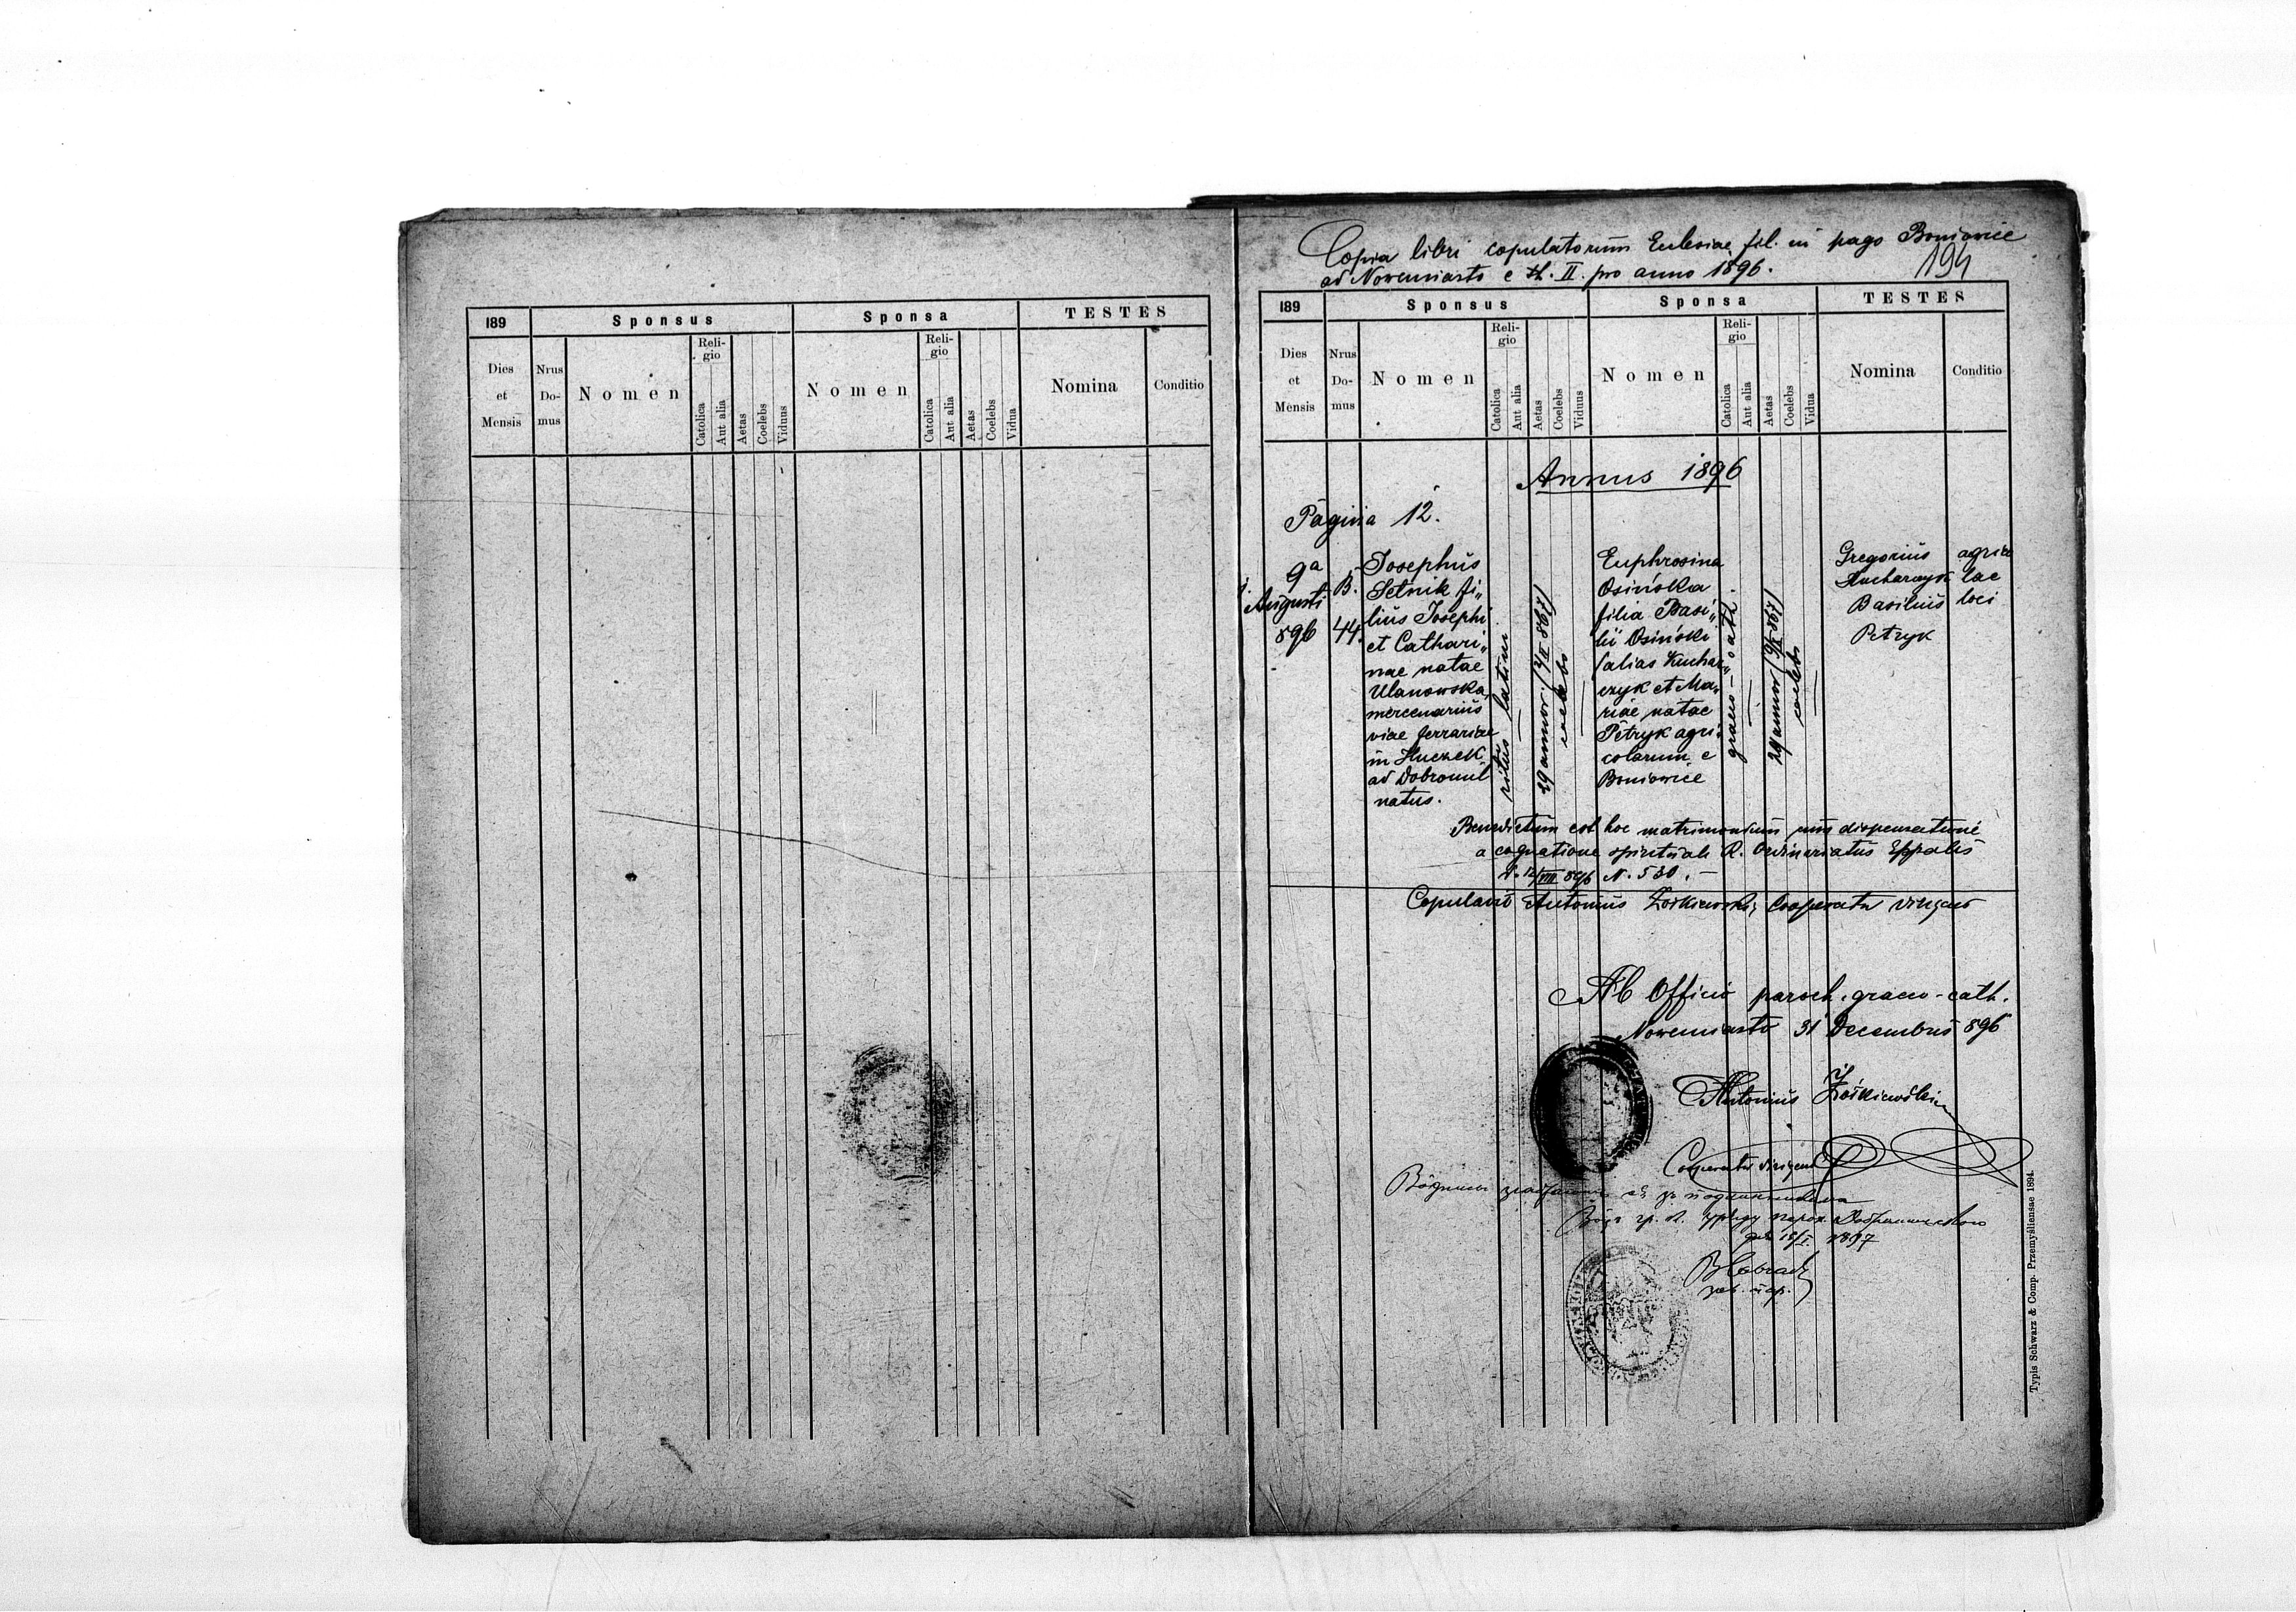 189
Sponsus
Sponsa
TESTES
Dies et Mensis
Nrus Domus
Nomen
Religio
Catolica
Aut alia
Aetas
Coelebs
Viduus
Nomen
Religio
Catolica
Aut alia
Aetas
Coelebs
Vidua
Nomina
Conditio
Copia libri copulatorum Eclesiae fil. in pago Boniowice
ad Nowemiasto e th. II. pro anno 1896.
194
189
Sponsus
Sponsa
TESTES
Dies et Mensis
Nrus Domus
Nomen
Religio
Catolica
Aut alia
Aetas
Coelebs
Viduus
Nomen
Religio
Catolica
Aut alia
Aetas
Coelebs
Vidua
Nomina
Conditio
Annus 1896
Pagina 12.
9a
Augusti
896
B.
44.
Josephus
Setnik fi„
lius Josephi
et Cathari„
nae natae
Ulanowska,
mercenarius
viae ferrariae
in Huczek
ad Dobromil
natus.
ritus latini
29 annor. (2/II 867)
coelebs
Euphrosina
Osińska
filia Basi„
lii Osiński
(alias Kuchar„
czyk et Ma„
riae natae
Petryk agri„
colarum e
Boniowice
graeco-cath.
29 annor (9/II 867)
coelebs
Gregorius
Kucharczyk
Basilius
Petryk
agrico
lae
loci
Benedictum est hoc matrimonium cum dispensatione
a cognatione spirituali R. Ordinariatus Eppalis
d. 12/VIII 896 N. 530. —
Copulavit Antonius Żółkiewski, Cooperator dirigens
Ab Officio paroch. graeco-cath.
Nowemiasto 31 Decembris 896
Antonius Żółkiewski
Cooperator dirigens
1897
Typis Schwarz & Comp. Przemyśliensae 1894.